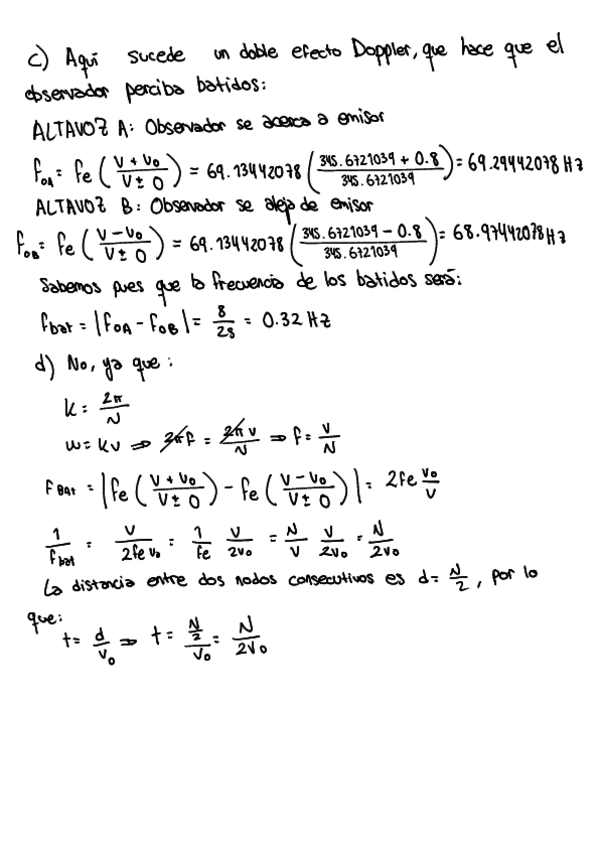 c) Aquí sucede un doble efecto Doppler, que hace que el
observador perciba batidos:
ALTAVOZ A: Observador se acerca a emisor
f_OA = fe ((V + V_0)/(V ± 0)) = 69.13442078 ((345.6721039 + 0.8)/345.6721039) = 69.29442078 Hz
ALTAVOZ B: Observador se aleja de emisor
f_OB = fe ((V - V_0)/(V ± 0)) = 69.13442078 ((345.6721039 - 0.8)/345.6721039) = 68.97442078 Hz
Sabemos pues que la frecuencia de los batidos será:
f_bat = |f_OA - f_OB| = 8/25 = 0.32 Hz
d) No, ya que:
k = 2π/λ
ω = kv ⇒ 2πf = 2πv/λ ⇒ f = v/λ
f_Bat = |fe ((V + V_0)/(V ± 0)) - fe ((V - V_0)/(V ± 0))| = 2fe V_0/V
1/f_bat = V/(2fe V_0) = 1/fe V/2V_0 = λ/V V/2V_0 = λ/2V_0
La distancia entre dos nodos consecutivos es d = λ/2, por lo
que:
t = d/V_0 ⇒ t = (λ/2)/V_0 = λ/2V_0